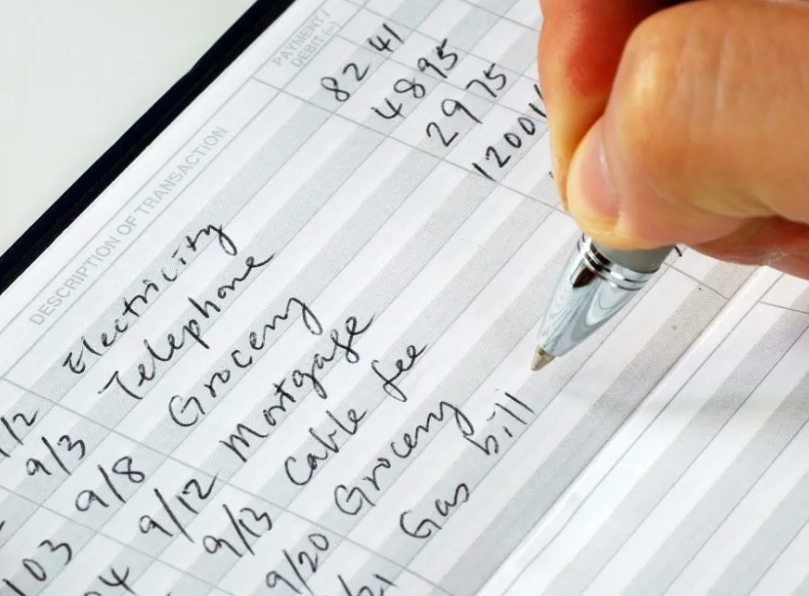 PAYMENT/
DEBIT (-)
DESCRIPTION OF TRANSACTION
/2 Electricity 82 41
9/3 Telephone 48 95
9/8 Grocery 29 75
103 9/12 Mortgage 1200
04 9/13 Cable fee
9/20 Grocery
/21 Gas bill